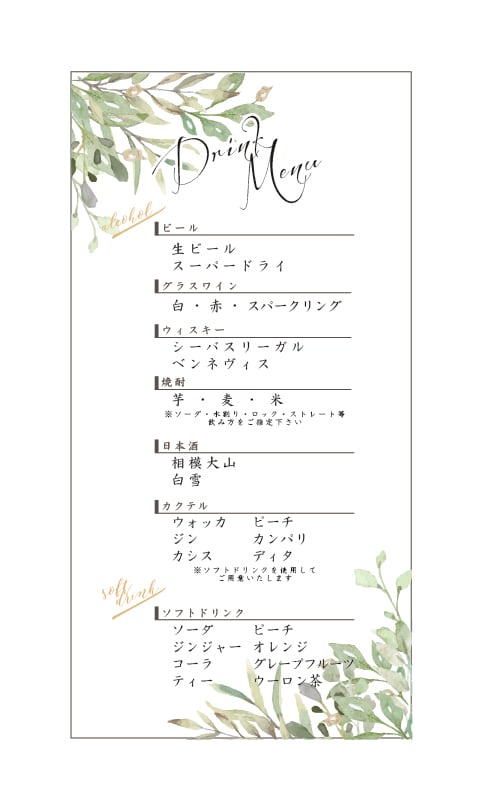 Drink
Menu
alcohol
ビール
生ビール
スーパードライ
グラスワイン
白・赤・スパークリング
ウィスキー
シーバスリーガル
ベンネヴィス
焼酎
芋・麦・米
※ソーダ・水割り・ロック・ストレート等
飲み方をご指定下さい
日本酒
相模大山
白雪
カクテル
ウォッカ ピーチ
ジン カンパリ
カシス ディタ
※ソフトドリンクを使用して
ご用意いたします
soft
drink
ソフトドリンク
ソーダ ピーチ
ジンジャー オレンジ
コーラ グレープフルーツ
ティー ウーロン茶